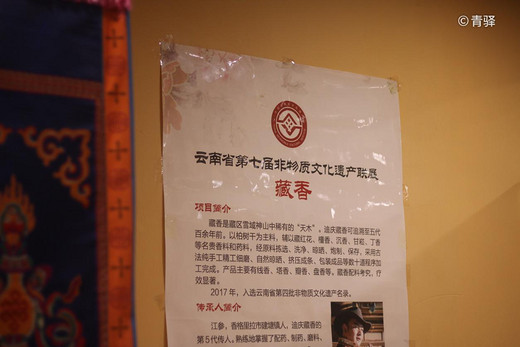 © 青驿
云南省第七届非物质文化遗产联展
藏香
项目简介
藏香是藏区雪域神山中稀有的“天木”。迪庆藏香可追溯至五代
百余年前。以柏树干为主料，辅以藏红花、檀香、沉香、甘松、丁香
等名贵香料和药料，经原料拣选、洗净、晾晒、炮制、保存，采用古
法纯手工精工细磨、自然晾晒、挤压成条、包装成品等数十道程序加
工完成。产品主要有线香、塔香、瓣香、盘香等。藏香配料考究，疗
效显著。
2017 年，入选云南省第四批非物质文化遗产名录。
传承人简介
江参，香格里拉市建塘镇人，迪庆藏香的
第5代传人。熟练地掌握了配药、制药、磨料、